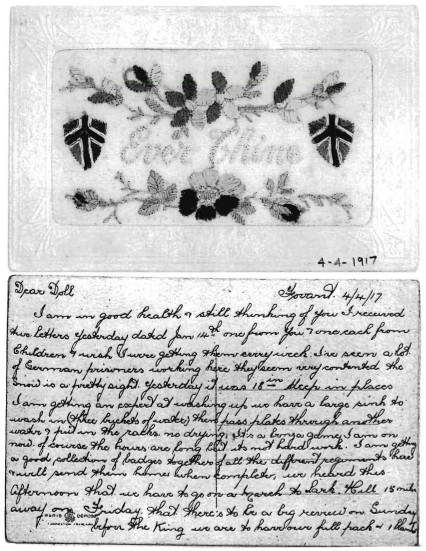 Ever Thine
4-4-1917
Dear Doll
Fovant. 4/4/17
I am in good health & still thinking of you I received
two letters yesterday dated Jan 14th one from you & one each from
Children I wish I were getting them every week. I've seen a lot
of German prisoners working here they seem very contented the
Snow is a pretty sight yesterday it was 18 ins deep in places
I am getting an expert at washing up we have a large sink to
wash in (three buckets of water) then pass plates through another
water & put in racks no drying, it's a game I am on
now of course the hours are long but its not hard work. I am getting
a good collection of badges together of all the different regiments here
& will send them home when complete, we heard this
Afternoon that we have to go on a march to Lark Hill 15 miles
away on Friday, that there's to be a big review on Sunday
before the King we are to have our full pack & 1
PARIS